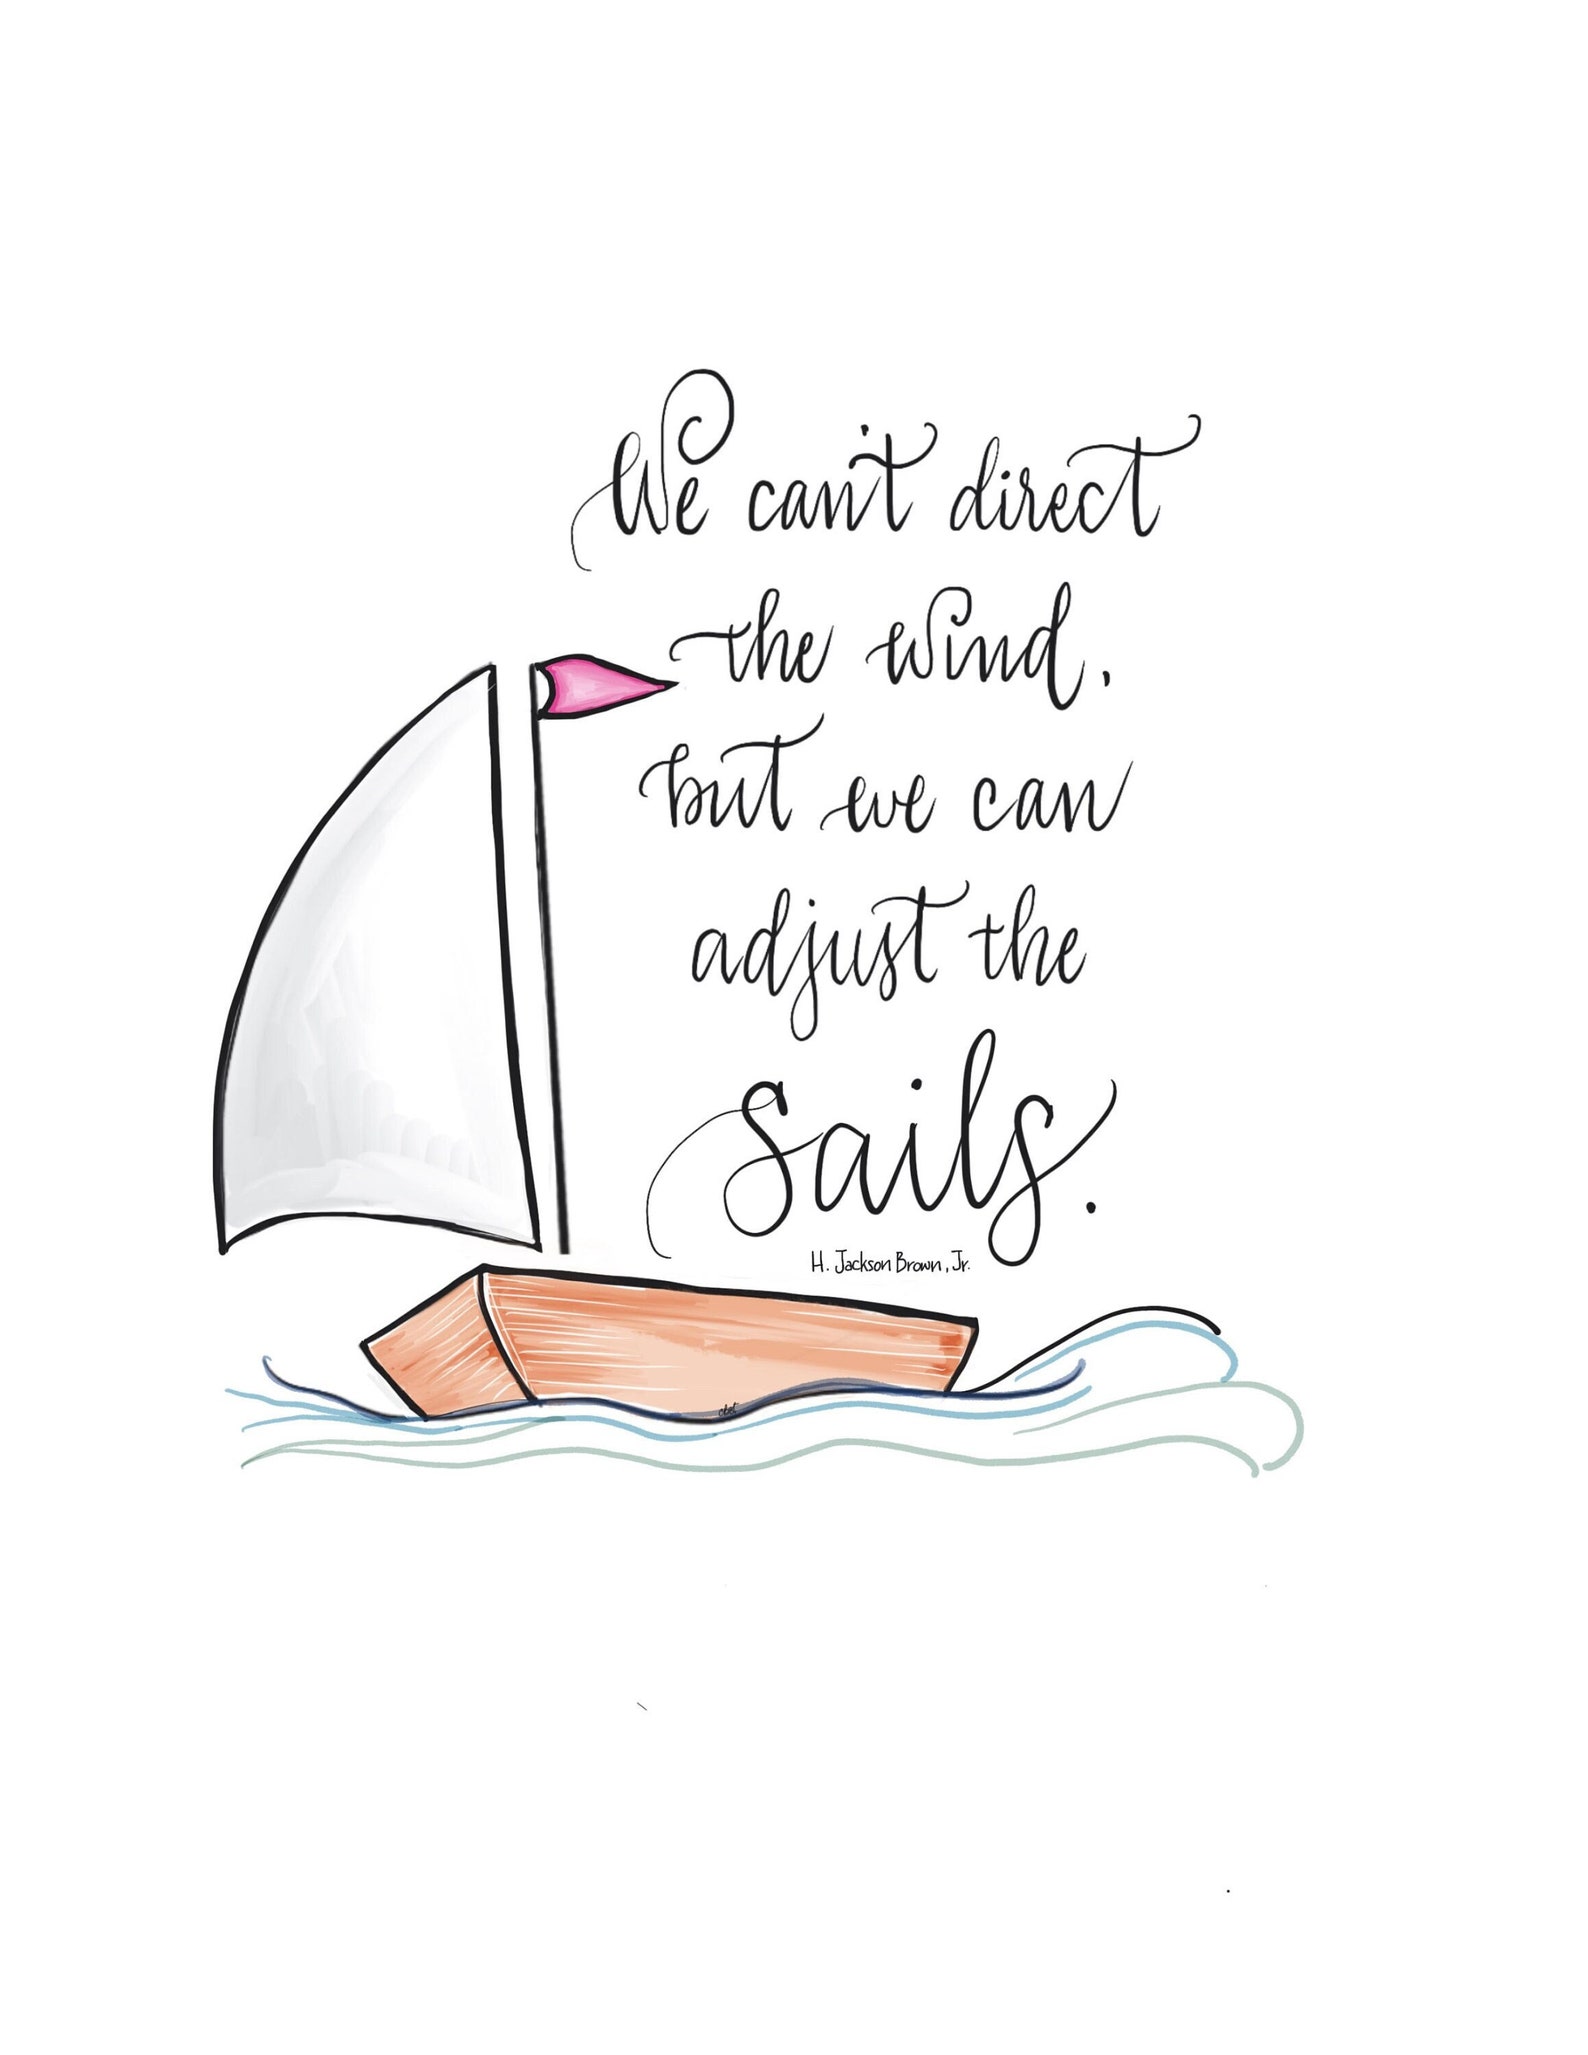 We can't direct
the wind,
but we can
adjust the
sails.
H. Jackson Brown, Jr.